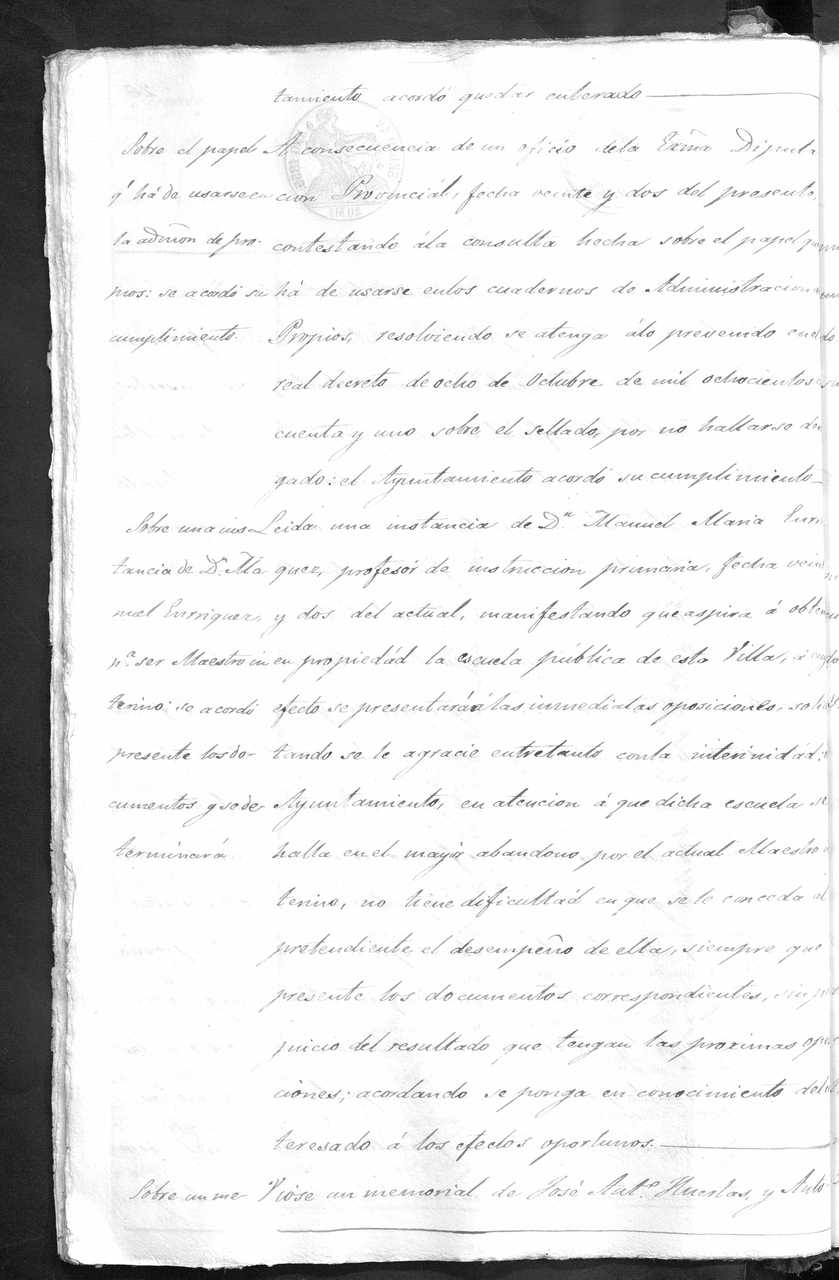 tamiento acordó quedar enterado
Sobre el papel
q.e há de usarse en
la admon de pro-
pios: se acordó su
cumplimiento.
A consecuencia de un oficio dela Exma Diputa
cion Provinciál, fecha veinte y dos del presente,
contestando ála consulta hecha sobre el papel que
há de usarse enlos cuadernos de Administracion
Propios, resolviendo se atenga álo prevenido en el
real decreto de ocho de Octubre de mil ochocientos
cuenta y uno sobre el sellado, por no hallarse de
gado: el Ayuntamiento acordó su cumplimiento
Sobre una ins
tancia de D.n Ma
nuel Enrriquez,
p.a ser Maestro in
terino: se acordó
presente los do-
cumentos y se de
terminará
Leida una instancia de D.n Manuel Maria Enrri
quez, profesór de instruccion primaria, fecha vein
y dos del actual, manifestando que aspira á obten
en propiedád la escuela pública de esta Villa, á cuyo
efecto se presentará á las inmediatas oposiciones, soli
tando se le agracie entretanto conla interinidád:
Ayuntamiento, en atencion á que dicha escuela se
halla en el mayor abandono por el actual Maestro
terino, no tiene dificultád en que se le conceda al
pretendiente el desempeño de ella, siempre que
presente los documentos correspondientes, sin per
juicio del resultado que tengan las proximas opo
ciones; acordando se ponga en conocimiento del
teresado á los efectos oportunos.
Sobre un me
Vióse un memorial de José Ant.o Huertas, y Anto